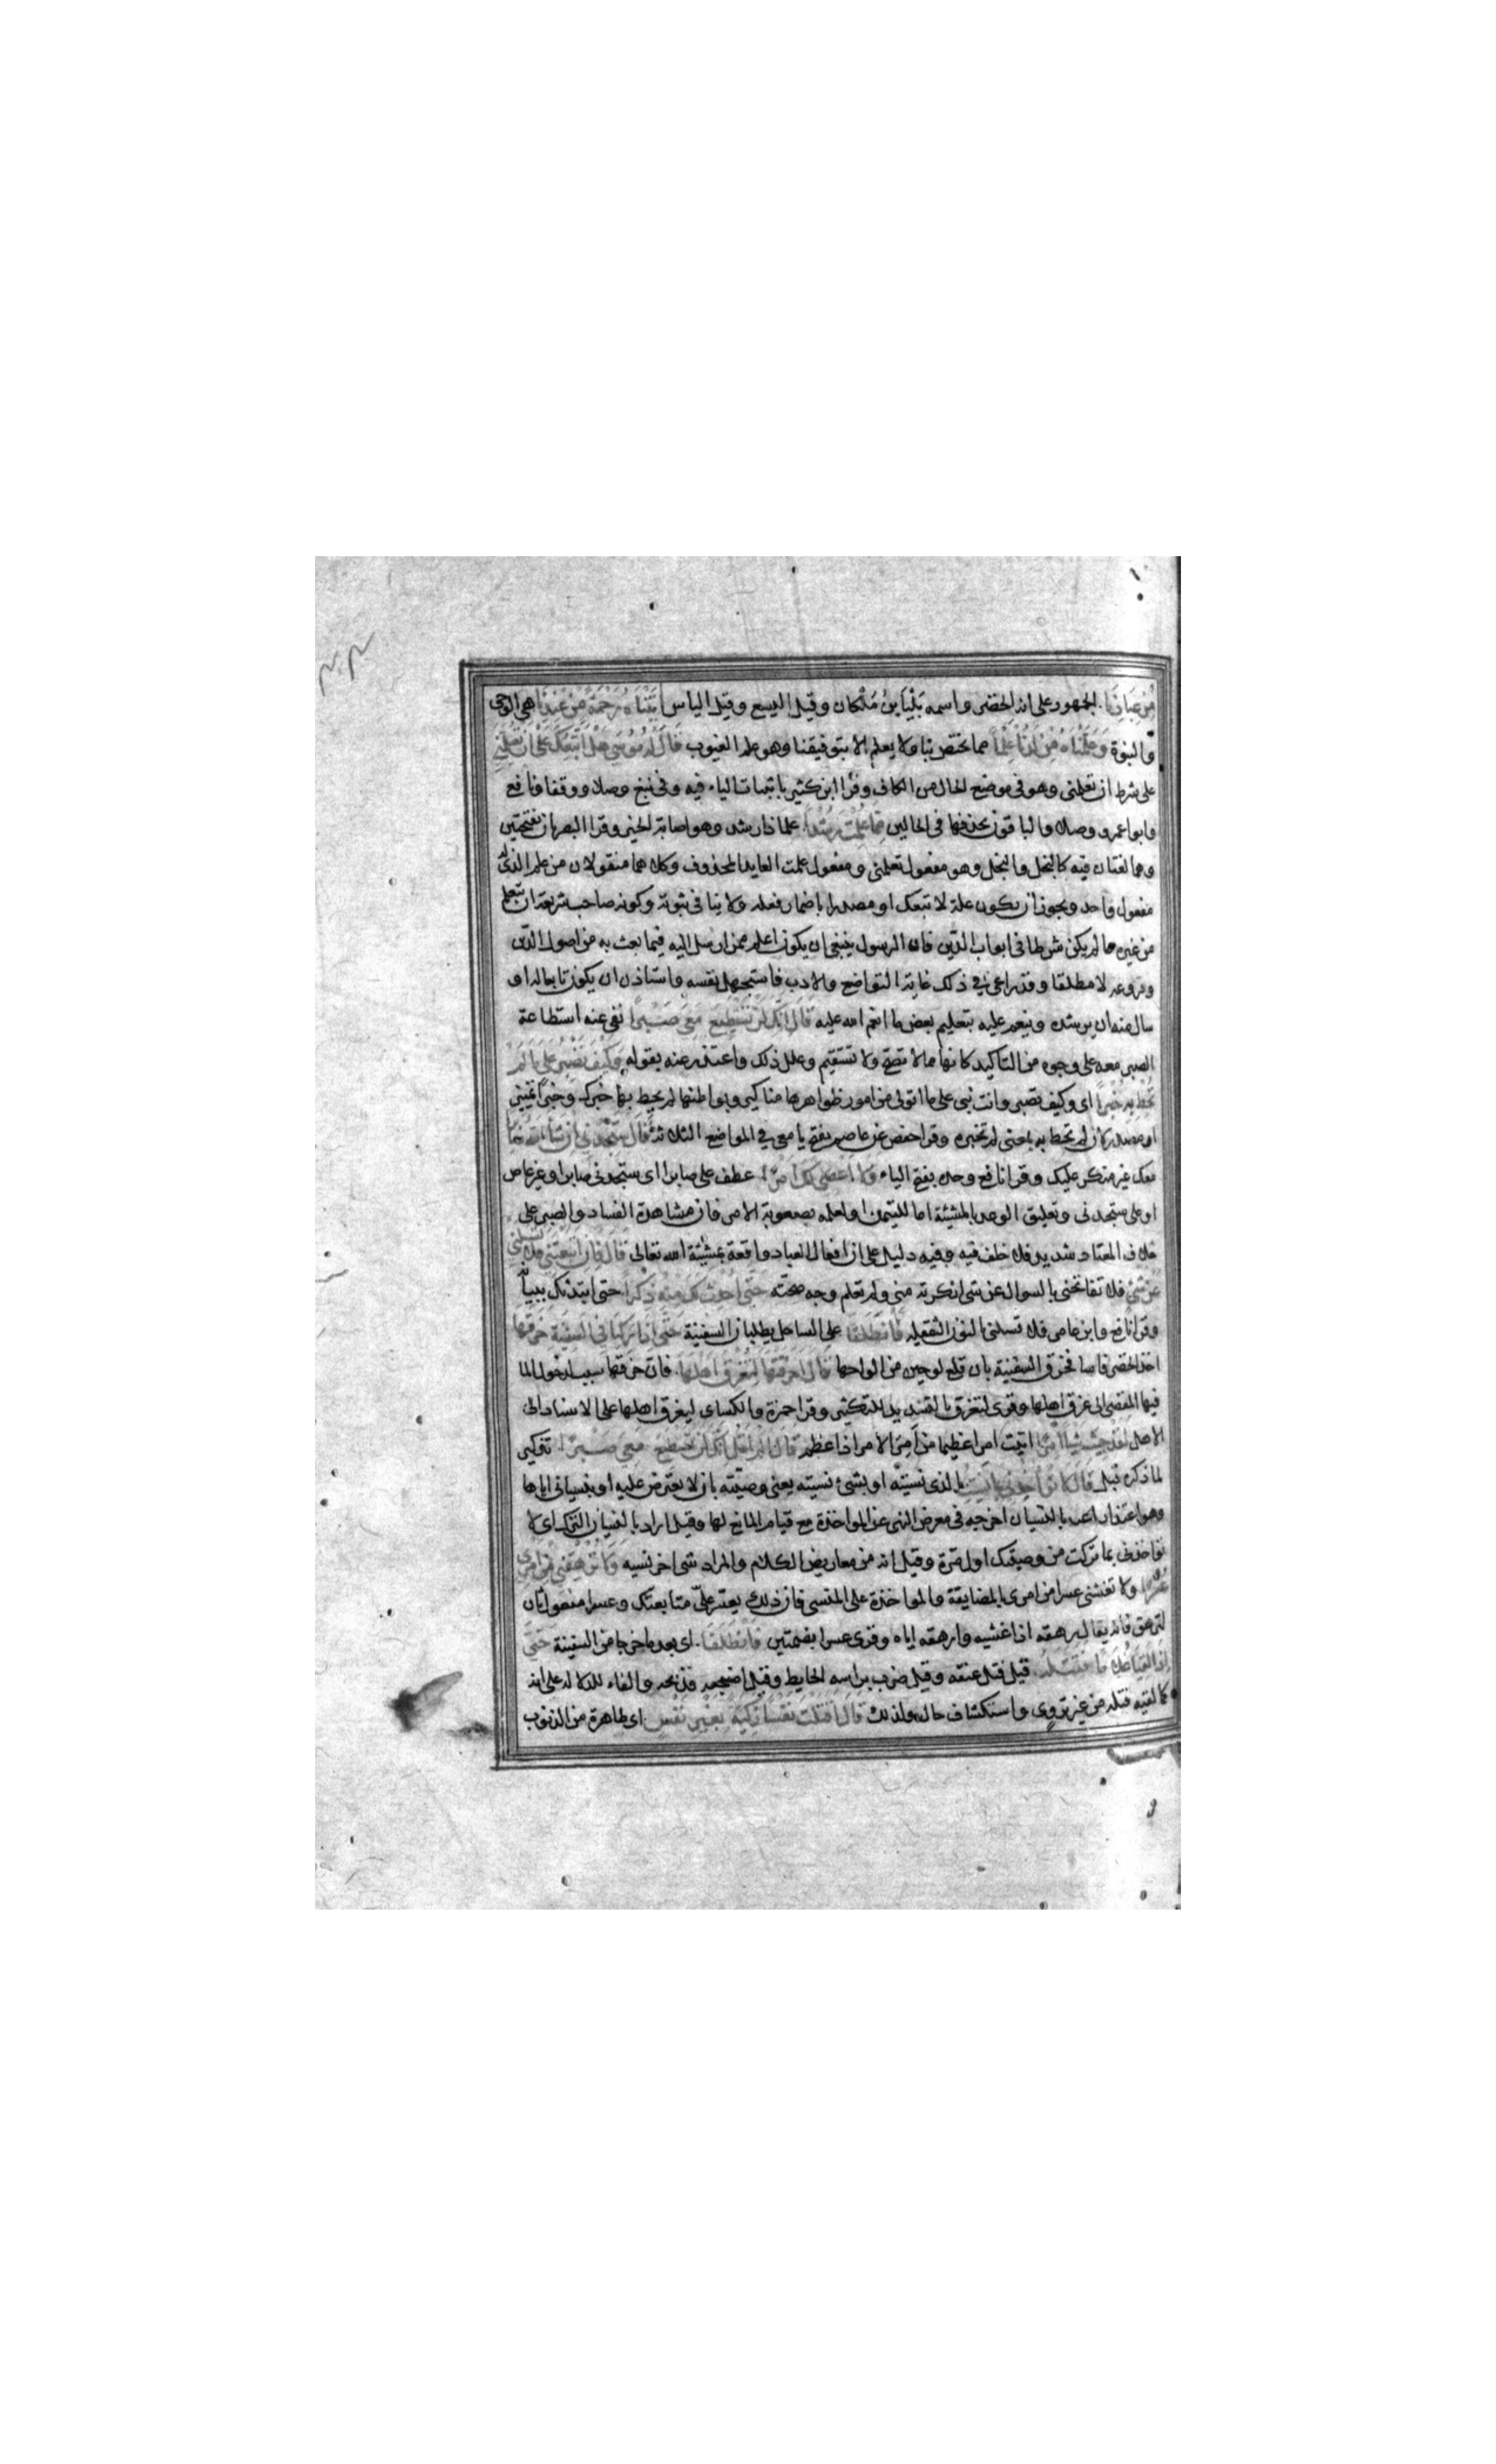 مِنْ عِبَادِنَا الجمهور على انه الخضر واسمه بَلْيَا بنُ مَلْكان وقيل اليسع وقيل الياس اٰتَيْنَاهُ رَحْمَةً مِنْ عِنْدِنَا هي الوحي
والنبوة وَعَلَّمْنَاهُ مِنْ لَدُنَّا عِلْمًا مما يختص بنا ولا يعلم الا بتوفيقنا وهو علم الغيوب قَالَ لَهُ مُوسَى هَلْ اَتَّبِعُكَ عَلَى اَنْ تُعَلِّمَنِي
على شرط ان تعلمنى وهو فى موضع الحال من الكاف وقرا ابن كثير باثبات الياء فيه وفى نبغ وصلا ووقفا ونافع
وابو اعمرو وصلا والباقون بحذفها فى الحالين مِمَّا عُلِّمْتَ رُشْدًا علما ذا رشد وهو اصابة الخير وقرا البصريان بفتحتين
وهما لغتان فيه كالبخل والبخل وهو مفعول تعلمنى ومفعول علمت العايد المحذوف وكلاهما منقولان من علم الذى له
مفعول واحد ويجوز ان يكون علة لاتبعك او مصدرا باضمار فعله ولا ينافى نبوته وكونه صاحب شريعة ان يتعلم
من غيره ما لم يكن شرطا فى ابواب الدّين فان الرسول ينبغى ان يكون اعلم ممن ارسل اليه فيما بعث به من اصول الدّين
وفروعه لا مطلقا وقد راعى فى ذلك غاية التواضع والادب فاستجهل نفسه واستاذن ان يكون تابعا له او
سال منه ان يرشده وينعم عليه بتعليم بعض ما انعم الله عليه قَالَ اِنَّكَ لَنْ تَسْتَطِيعَ مَعِيَ صَبْرًا نفى عنه استطاعة
الصبر معه على وجوه من التاكيد كانها مما لا تصحّ ولا تستقيم وعلل ذلك واعتذر عنه بقوله وَكَيْفَ تَصْبِرُ عَلَى مَا لَمْ
تُحِطْ بِهِ خُبْرًا اى وكيف تصبر وانت نبى على ما اتولى من امور ظواهرها مناكير وبواطنها لم يحط بها خبرك وخبرا تمييز
او مصدر لان لم تحط به بمعنى لم تخبره وقرا حفص عن عاصم بفتح يا معى فى المواضع الثلاثة قَالَ سَتَجِدُنِي اِنْ شَاءَ اللهُ صَابِرًا
معك غير منكر عليك وقرا نافع وحده بفتح الياء وَلَا اَعْصِي لَكَ اَمْرًا عطف على صابرا اى ستجدنى صابرا وغير عاص
او على ستجدنى وتعليق الوعد بالمشيئة اما للتيمن او لعلمه بصعوبة الامر فان مشاهدة الفساد والصبر على
خلاف المعتاد شديد فلا خلف فيه وفيه دليل على ان افعال العباد واقعة بمشيّئة الله تعالى قَالَ فَاِنِ اتَّبَعْتَنِي فَلَا تَسْئَلْنِي
عَنْ شَيْءٍ فلا تفاتحنى بالسوال عن شى انكرته منى ولم تعلم وجه صحّته حَتَّى اُحْدِثَ لَكَ مِنْهُ ذِكْرًا حتى ابتدئك ببيانه
وقرا نافع وابن عامر فلا تسلنى بالنون الثقيلة فَانْطَلَقَا على الساحل يطلبان السفينة حَتَّى اِذَا رَكِبَا فِي السَّفِينَةِ خَرَقَهَا
اخذ الخضر فاسا فخرق السفينة بان قلع لوحين من الواحها قَالَ اَخَرَقْتَهَا لِتُغْرِقَ اَهْلَهَا فان خرقها سبب لدخول الما
فيها المفضى الى غرق اهلها وقرى لتغرق بالتشديد للتكثير وقرا حمزة والكساى ليغرق اهلها على الاسناد الى
الاهل لَقَدْ جِئْتَ شَيْئًا اِمْرًا اتيت امرا عظيما من اَمِرَ الامر اذا عظم قَالَ اَلَمْ اَقُلْ اِنَّكَ لَنْ تَسْتَطِيعَ مَعِيَ صَبْرًا تذكير
لما ذكره قبل قَالَ لَا تُؤَاخِذْنِي بِمَا نَسِيتُ بالذى نسيته او بشئ نسيته يعنى وصيّته بان لا يعترض عليه او بنسيانى اياها
وهو اعتذار اعـ بالنسيان اخرجه فى معرض النهى عن المواخذة مع قيام المانع لها وقيل اراد بالنسيان الترك اى لا
تواخذنى بما تركت من وصيتك اول مرة وقيل انه من معاريض الكلام والمراد شى اخر نسيه وَلَا تُرْهِقْنِي مِنْ اَمْرِي
عُسْرًا ولا تغشنى عسرا من امرى بالمضايقة والمواخذة على المنسى فان ذلك يعسّر علىّ متابعتك وعسرا مفعول ثان
لترهق فانه يقال رهقه اذا غشيه وارهقه اياه وقرى عسرا بضمتين فَانْطَلَقَا اى بعد ما خرجا من السفينة حَتَّى
اِذَا لَقِيَا غُلَامًا فَقَتَلَهُ قيل فتل عنقه وقيل ضرب براسه الحايط وقيل اضجعه فذبحه والفاء للدلالة على انه
كما لقيه قتله من غير تروّى واستكشاف حال ولذلك قَالَ اَقَتَلْتَ نَفْسًا زَكِيَّةً بِغَيْرِ نَفْسٍ اى طاهرة من الذنوب